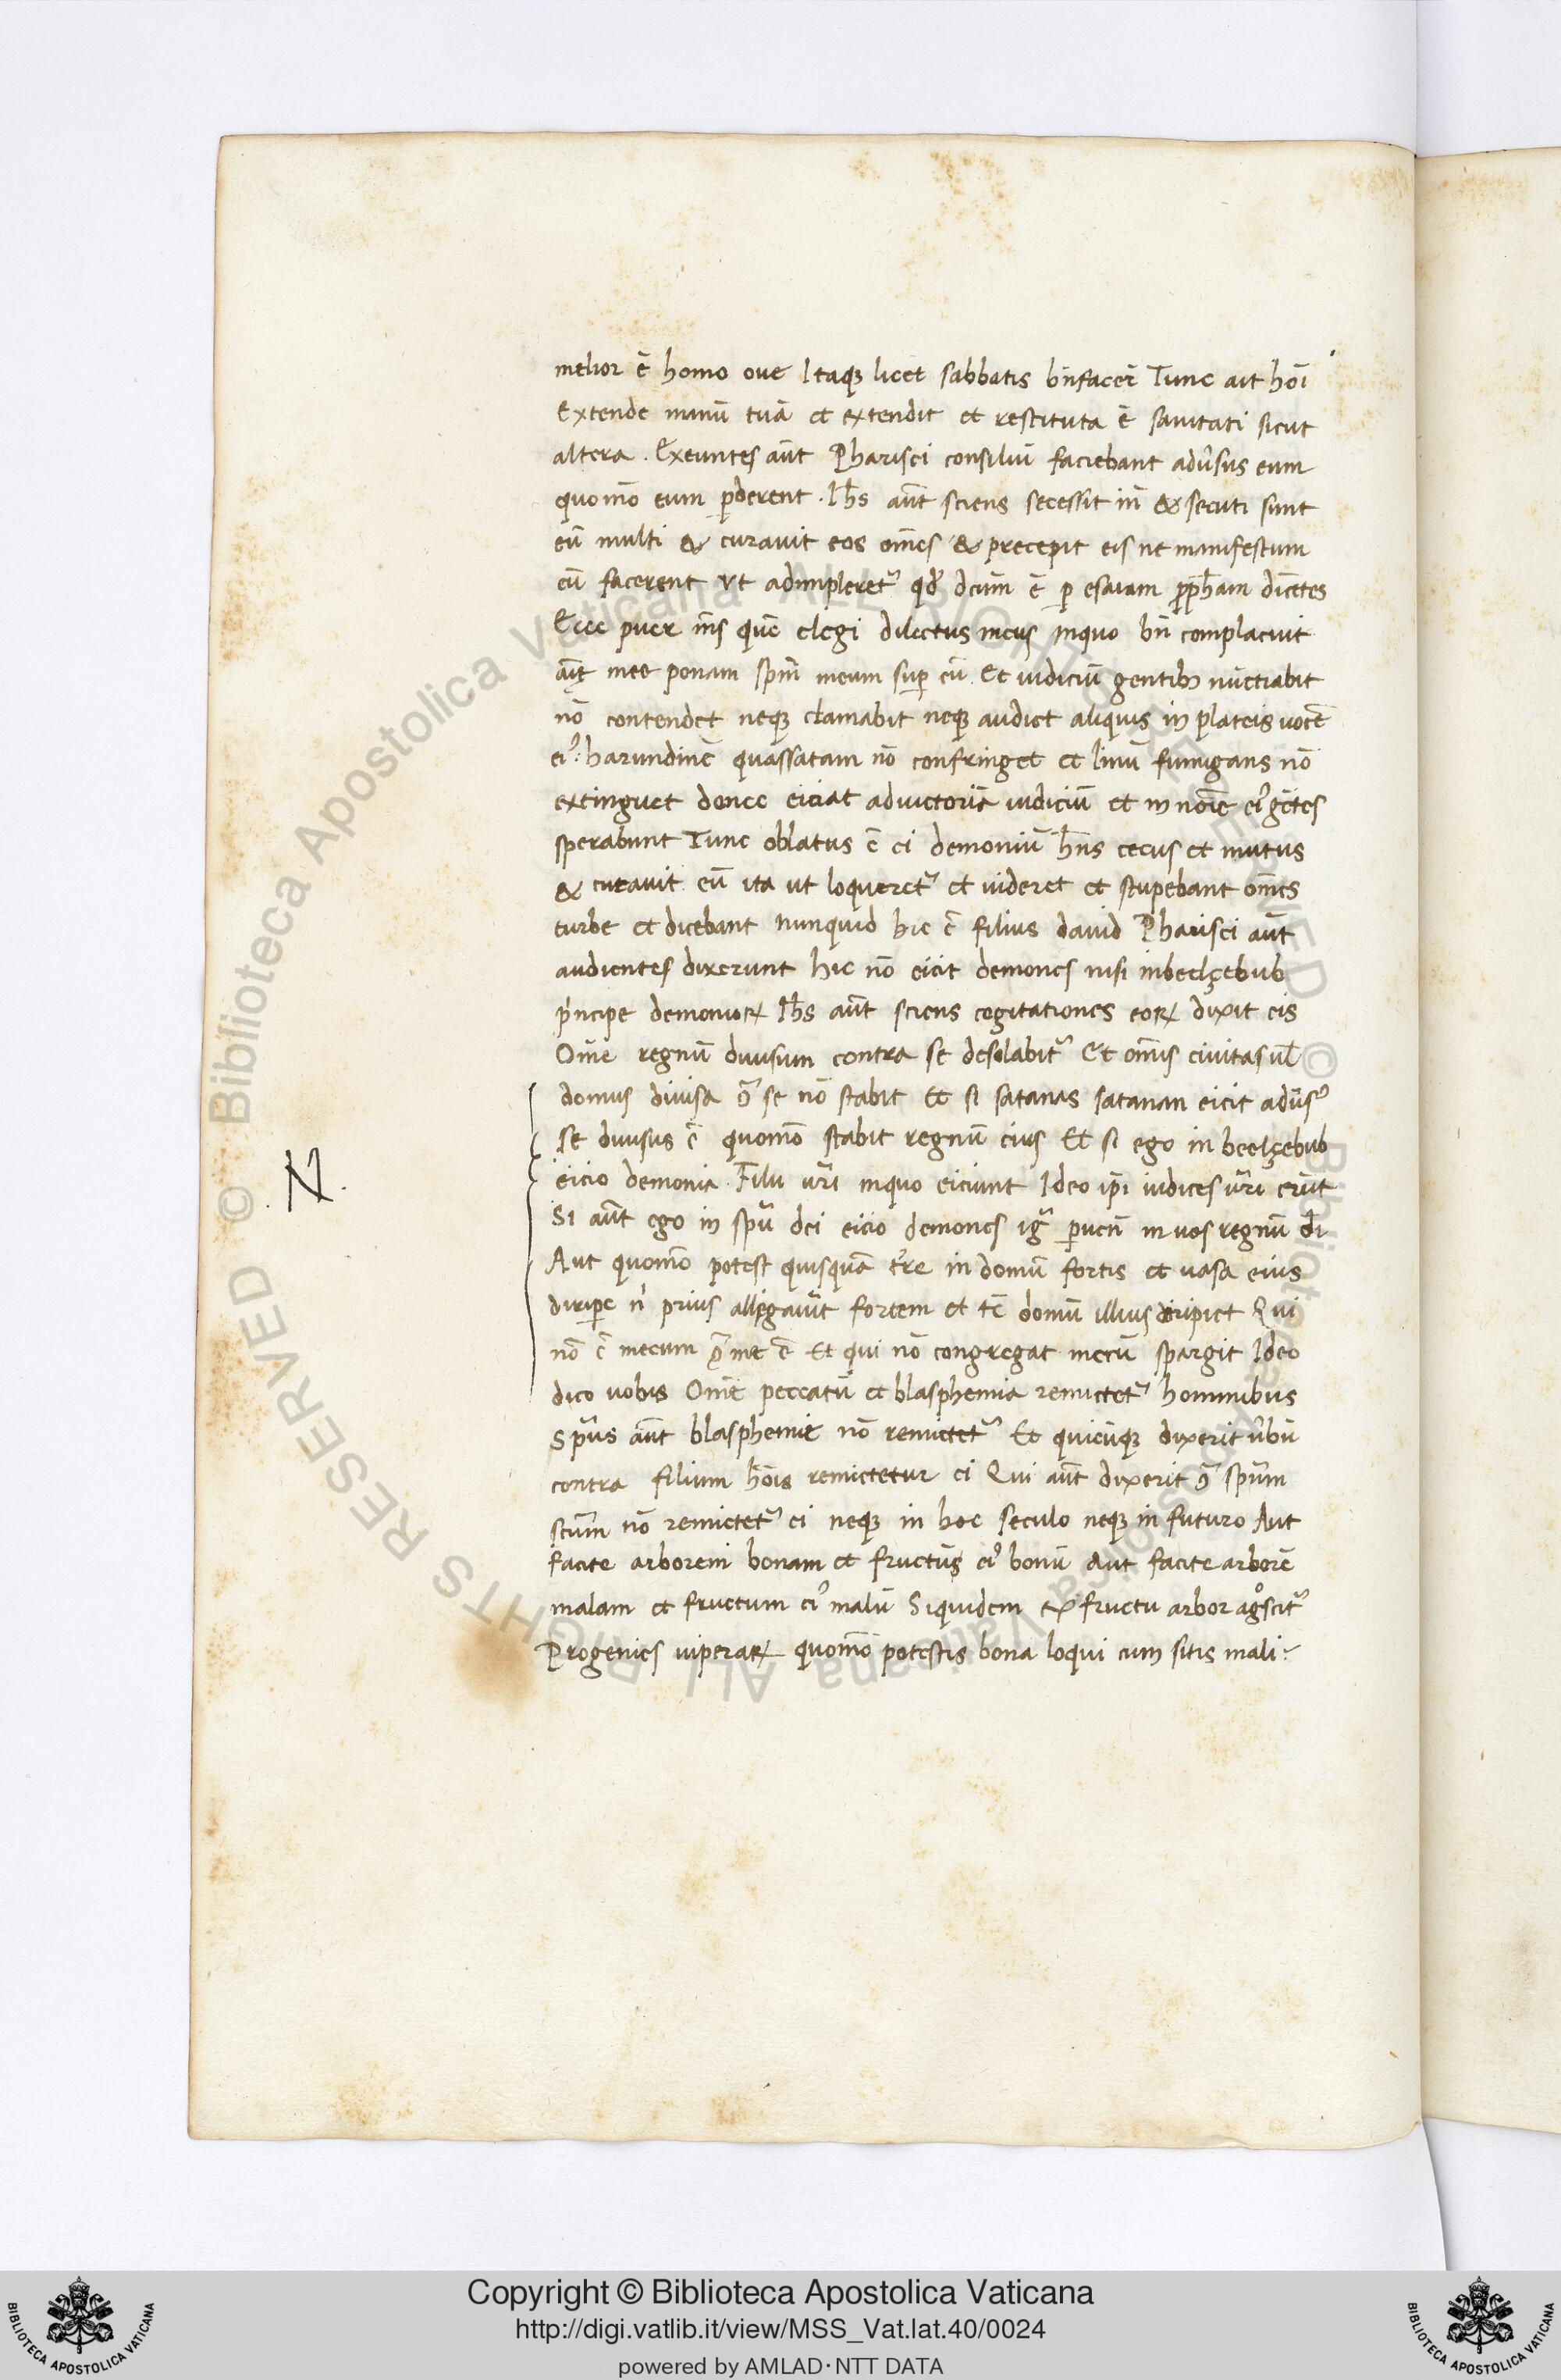 melior ē homo oue Itaqꝫ licet sabbatis bn̄facer̄ Tunc ait hoī
Extende manū tuā et extendit et restituta ē sanitati sicut
altera . Exeuntes aūt Pharisei consiliū faciebant adūsus eum
quomō eum ꝑderent . Ihs aūt sciens secessit in̄ & secuti sunt
eū multi & curauit eos om̄es & precepit eis ne manifestum
eū facerent vt adimpleretᷣ qđ dcūm ē ꝑ esaiam ꝓpħam dicētes
Ecce puer m̄s quē elegi dilectus meus inquo bn̄ complacuit
aīę mee ponam spm̄ meum suꝑ eū Et iudiciū gentibꝫ nūctiabit
nō contendet neqꝫ clamabit neqꝫ audiet aliquis in plateis uocē
eiꝰ harundinē quassatam nō confringet et linū fumigans nō
extinguet donec eiciat aduictoriā iudiciū et in noīe eiꝰ gētes
sperabunt Tunc oblatus ē ei demoniū hn̄s cecus et mutus
& curauit eū ita ut loqueretᷣ et uideret et stupebant om̄es
turbe et dicebant nunquid hic ē filius dauid Pharisei aūt
audientes dixerunt hic nō eicit demones nisi inbeelçebub
pͥncipe demonioꝝ Ihs aūt sciens cogitationes eoꝝ dixit eis
Om̄e regnū diuisum contra se desolabitᷣ Et om̄is ciuitas ul̄
domus diuisa ꝯͣ se nō stabit Et si satanas satanan eicit adūsꝰ
se diuisus ē quomō stabit regnū eius Et si ego in beelçebub
eicio demonia Filii ur̄i inquo eiciunt Ideo ip̄i iudices ur̄i erūt
Si aūt ego in spū dei eicio demones igͣ ꝑuen̄ in uos regnū dī
Aut quomō potest quisquā ītͬre in domū fortis et uasa eius
diriꝑe nͥ prius alligauīt fortem et tc̄ domū illius diripiet Qui
nō ē mecum ꝯͣ me ē Et qui nō congregat mecū spargit Ideo
dico uobis Om̄e peccatū et blasphemia remictetᷣ hominibus
Spūs aūt blasphemie nō remictetᷣ Et quicūqꝫ dixerit ūbū
contra filium hoīs remictetur ei Qui aūt dixerit ꝯͣ spūm
scūm nō remictetᷣ ei neqꝫ in hoc seculo neqꝫ in futuro Aut
facite arborem bonam et fructūs eiꝰ bonū Aut facite arborē
malam et fructum eiꝰ malū Siquidem ex fructu arbor agͦscitᷣ
Progenies uiperaꝝ quomō potestis bona loqui cum sitis mali
N.
© Biblioteca Apostolica Vaticana ALL RIGHTS RESERVED
© Biblioteca Apostolica Vaticana ALL RIGHTS RESERVED
Copyright © Biblioteca Apostolica Vaticana
http://digi.vatlib.it/view/MSS_Vat.lat.40/0024
powered by AMLAD·NTT DATA
BIBLIOTECA APOSTOLICA VATICANA
BIBLIOTECA APOSTOLICA VATICANA